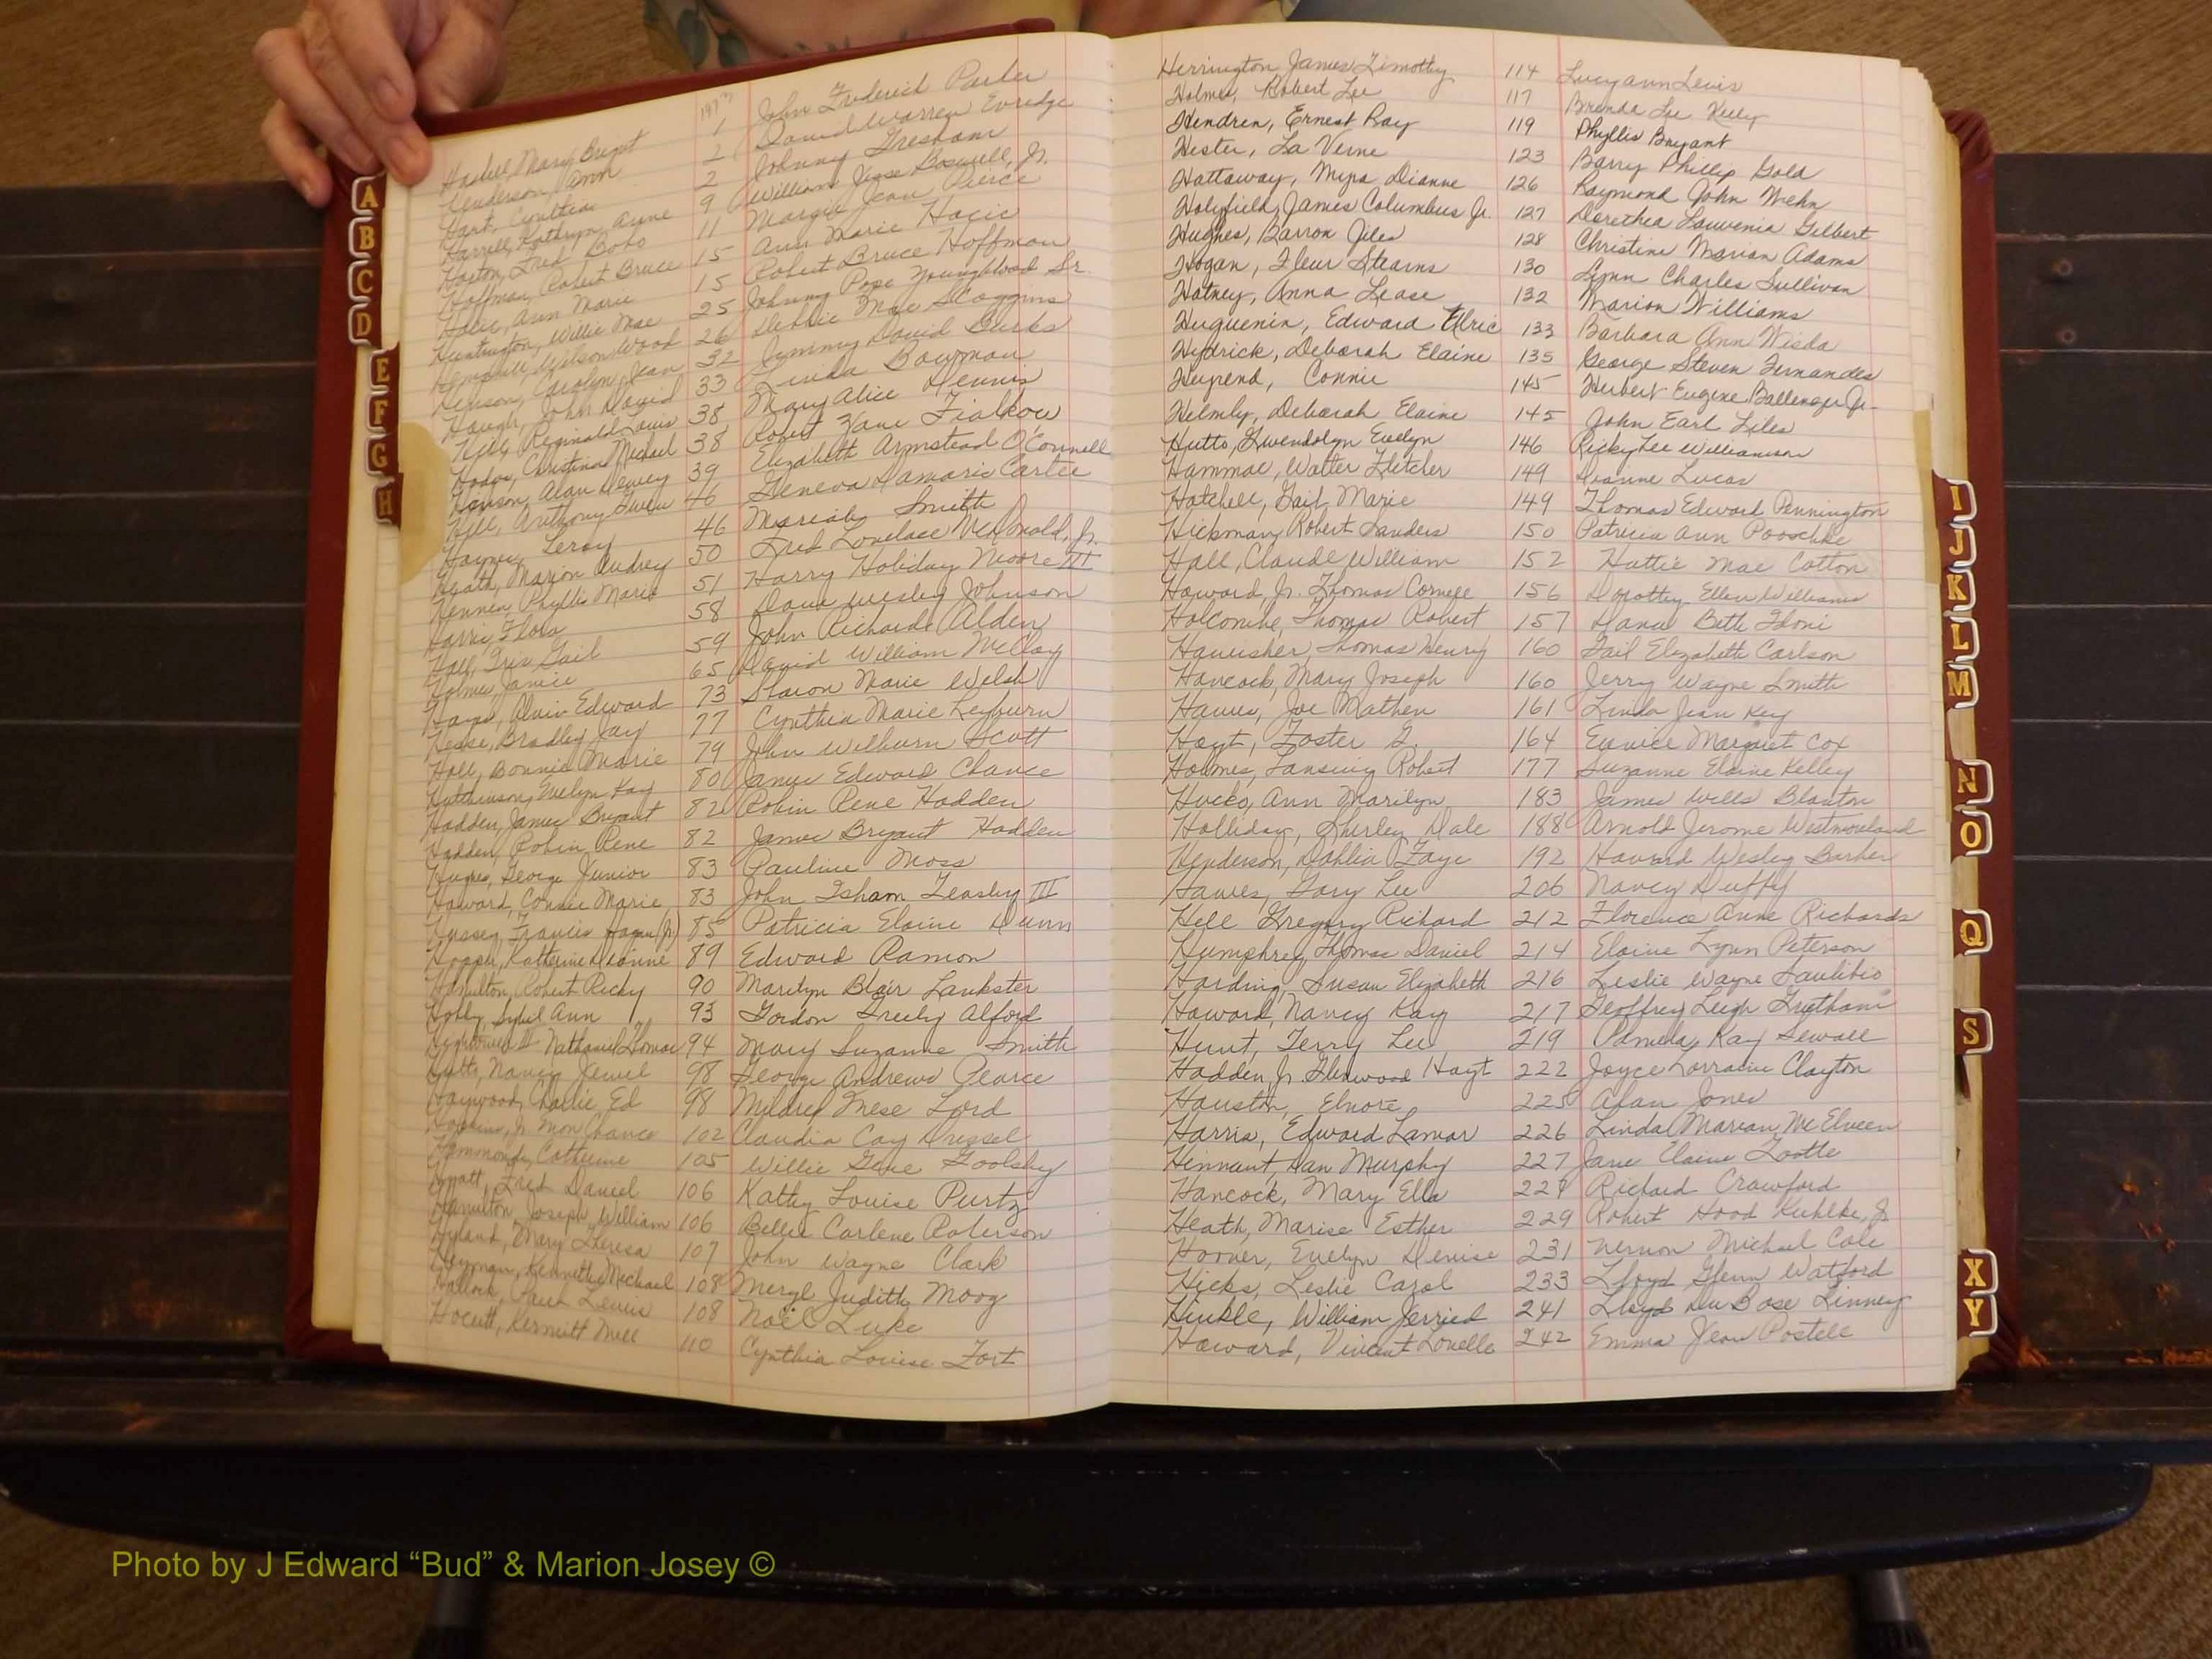 John Frederick Parker
Haskell, Mary Bright 1 David Warren Evridge
Henderson, Ann 2 Johnny Gresham
Hart, Cynthia 2 William Jesse Boswell, Jr.
Harrell, Kathryn Anne 9 Margie Jean Pierce
Hoston, Fred Bobo 11 Ann Marie Hocic
Hoffman, Robert Bruce 15 Robert Bruce Hoffman
Hocic, Ann Marie 15 Johnny Pope Youngblood Sr.
Huntington, Willie Mae 25 Debbie Mae Scoggins
Wilson Wood 26 Jimmy David Burks
Henson, Carolyn Jean 32 Linda Bowman
Haugh, John David 33 Mary Alice Dennis
Hill, Reginald Louis 38 Robert Zane Fialkow
Christina Michael 38 Elizabeth Armstead O'Connell
Hanson, Alan Dewey 39 Geneva Damaris Carter
Hill, Anthony 46 Smith
Haynes, Leroy 46 Fred Lovelace McDonald, Jr.
Heath, Marion Audrey 50 Harry Holiday Moore III
Hennen, Phyllis Marie 51 Dave Wesley Johnson
Harris, Flora 58 John Richards Alden
Hall, Iris Gail 59 David William McClay
Holmes, Janice 65 Sharon Marie Welsh
Hays, Alvin Edward 73 Cynthia Marie Leyburn
Hesse, Bradley Jay 77 John Wilburn Scott
Holl, Bonnie Marie 79 James Edward Chance
Hutchinson, Evelyn Kay 80 Robin Rene Hadden
Hadden, James Bryant 82 James Bryant Hadden
Hadden, Robin Rene 82 Pauline Moss
Hughes, George Junior 83 John Isham Teasley III
Howard, Connie Marie 83 Patricia Elaine Dunn
Hussey, Francis Hagan (Jr) 85 Edward Ramon
Hopper, Katherine Dianne 89 Marilyn Blair Lankster
Hamilton, Robert Ricky 90 Gordon Greely Alford
Hobby, Sybil Ann 93 Mary Suzanne Smith
Nathaniel Thomas 94 George Andrews Pearce
Hutto, Nancy Jewel 98 Mildred Irese Lord
Haywood, Charlie Ed 98 Claudia Cay Dressel
Jr. Mon Chance 102 Willie Gene Goolsby
Hammonds, Catherine 105 Kathy Louise Purtz
Hyatt, Fred Daniel 106 Billie Carlene Roberson
Hamilton, Joseph William 106 John Wayne Clark
Hyland, Mary Theresa 107 Meryl Judith Moog
Heyman, Kenneth Michael 108 Noel Luke
Hallock, Paul Lewis 108 Cynthia Louise Fort
Hocutt, Kermitt Nell 110
Herrington James Timothy 114 Lucyann Lewis
Holmes, Robert Lee 117 Brenda Lee Kelly
Hendren, Ernest Ray 119 Phyllis Bryant
Hester, La Verne 123 Barry Phillip Gold
Hattaway, Myra Dianne 126 Raymond John Wehn
Holyfield, James Columbus Jr. 127 Dorethea Louvenia Gilbert
Hughes, Barron Jiles 128 Christine Marian Adams
Hogan, Fleur Stearns 130 Lynn Charles Sullivan
Hatney, Anna Lease 132 Marion Williams
Huguenin, Edward Ulric 133 Barbara Ann Wisda
Hydrick, Deborah Elaine 135 George Steven Fernandes
Connie 145 Herbert Eugene Ballenger Jr.
Helmly, Deborah Elaine 145 John Earl Liles
Hutto, Gwendolyn Evelyn 146 Ricky Lee Williamson
Hammac, Walter Fletcher 149 Dianne Lucas
Hatchell, Gail Marie 149 Thomas Edward Pennington
Hickman, Robert Sanders 150 Patricia Ann Pooschke
Hall, Claude William 152 Hattie Mae Cotton
Howard, Jr. Thomas Cornell 156 Dorothy Ellen Williams
Holcombe, Thomas Robert 157 Beth
Hawisher, Thomas Henry 160 Gail Elizabeth Carlson
Hancock, Mary Joseph 160 Jerry Wayne Smith
Hawes, Joe Mathen 161 Linda Jean Key
Hoyt, Foster G. 164 Eunice Margaret Cox
Holmes, Lansing Robert 177 Suzanne Elaine Kelley
Hucko, Ann Marilyn 183 James Wells Blanton
Holliday, Shirley Dale 188 Arnold Jerome Westmoreland
Henderson, Dahlia Faye 192 Howard Wesley Barber
Hawes, Gary Lee 206 Nancy Duffy
Hill Gregory Richard 212 Florence Anne Richards
Humphrey, Thomas Daniel 214 Elaine Lynn Peterson
Harding, Susan Elizabeth 216 Leslie Wayne
Howard, Nancy Kay 217 Geoffrey Leigh
Hunt, Terry Lee 219 Pamela Kay Sewall
Hadden, Jr. Glenwood Hoyt 222 Joyce Lorraine Clayton
Houston, Elnore 225 Alan Jones
Harris, Edward Lamar 226 Linda Marian McElveen
Hinnant, Dan Murphy 227 Jane Elaine Tootle
Hancock, Mary Ella 228 Richard Crawford
Heath, Marise Esther 229 Robert Hood Kuhlke, Jr
Hoover, Evelyn Denise 231 Vernon Michael Cole
Hicks, Leslie Carol 233 Lloyd Glenn Watford
Hinkle, William Jerried 241 Lloyd DuBose Linney
Howard, Vincent Lovelle 242 Emma Jean Postell
A
B
C
D
E
F
G
H
I
J
K
L
M
N
O
Q
S
X
Y
Photo by J Edward “Bud” & Marion Josey ©